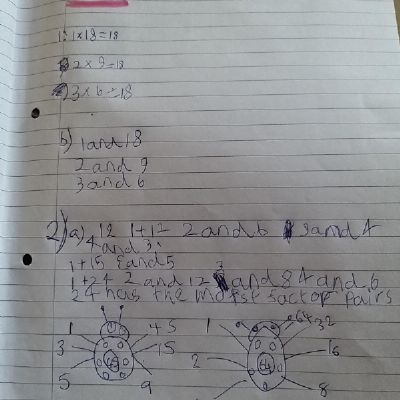 1 x 18 = 18
2 x 9 = 18
3 x 6 = 18
b) 1 and 18
2 and 9
3 and 6
2) a) 12 1+12 2 and 6 3 and 4
4 and 3
1+15 3 and 5
1+24 2 and 12 3 and 8 4 and 6
24 has the most factor pairs
1 45 1 64
3 15 32
5 9 2 16
8